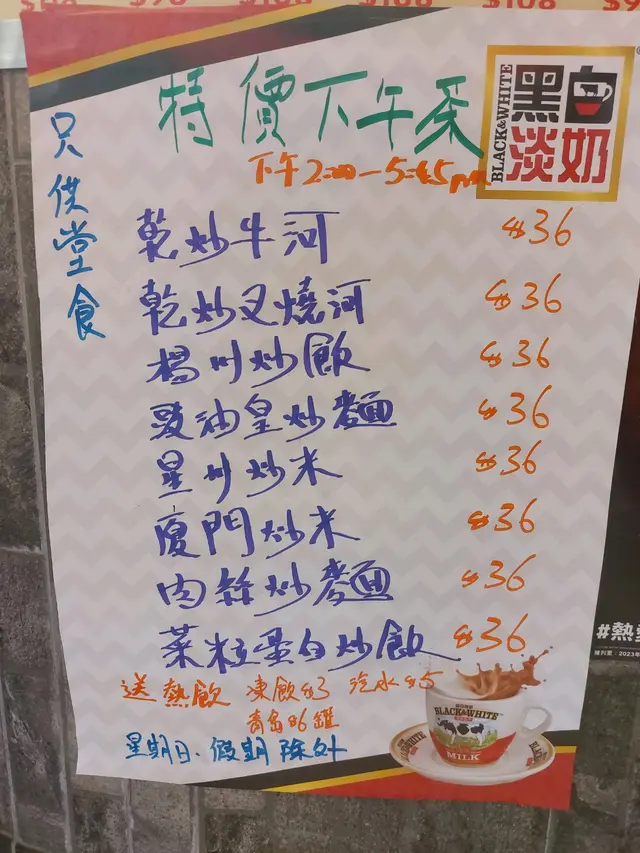 $108
特價下午茶
只供堂食
BLACK&WHITE
黑白
淡奶
下午2:00-5:45pm
乾炒牛河 $36
乾炒叉燒河 $36
楊州炒飯 $36
豉油皇炒麵 $36
星州炒米 $36
廈門炒米 $36
肉絲炒麵 $36
菜粒蛋白炒飯 $36
送熱飲 凍飲$3 汽水$5
青島$6罐
星期日、假期除外
BLACK&WHITE
MILK
BLACK&WHITE
#熱